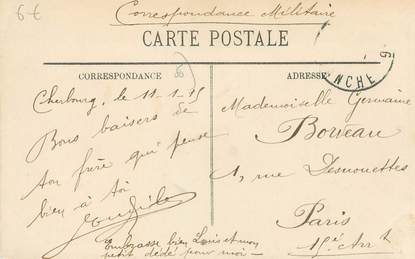 6€
Correspondance Militaire
CARTE POSTALE
CORRESPONDANCE
ADRESSE
NCHE
Cherbourg, le 11-1-15
Bons baisers de
ton frère qui pense
bien à toi
Embrasse bien Louis et mon
petit dédé pour moi -
Mademoiselle Germaine
1, rue Desnouettes
Paris
15e Arrt